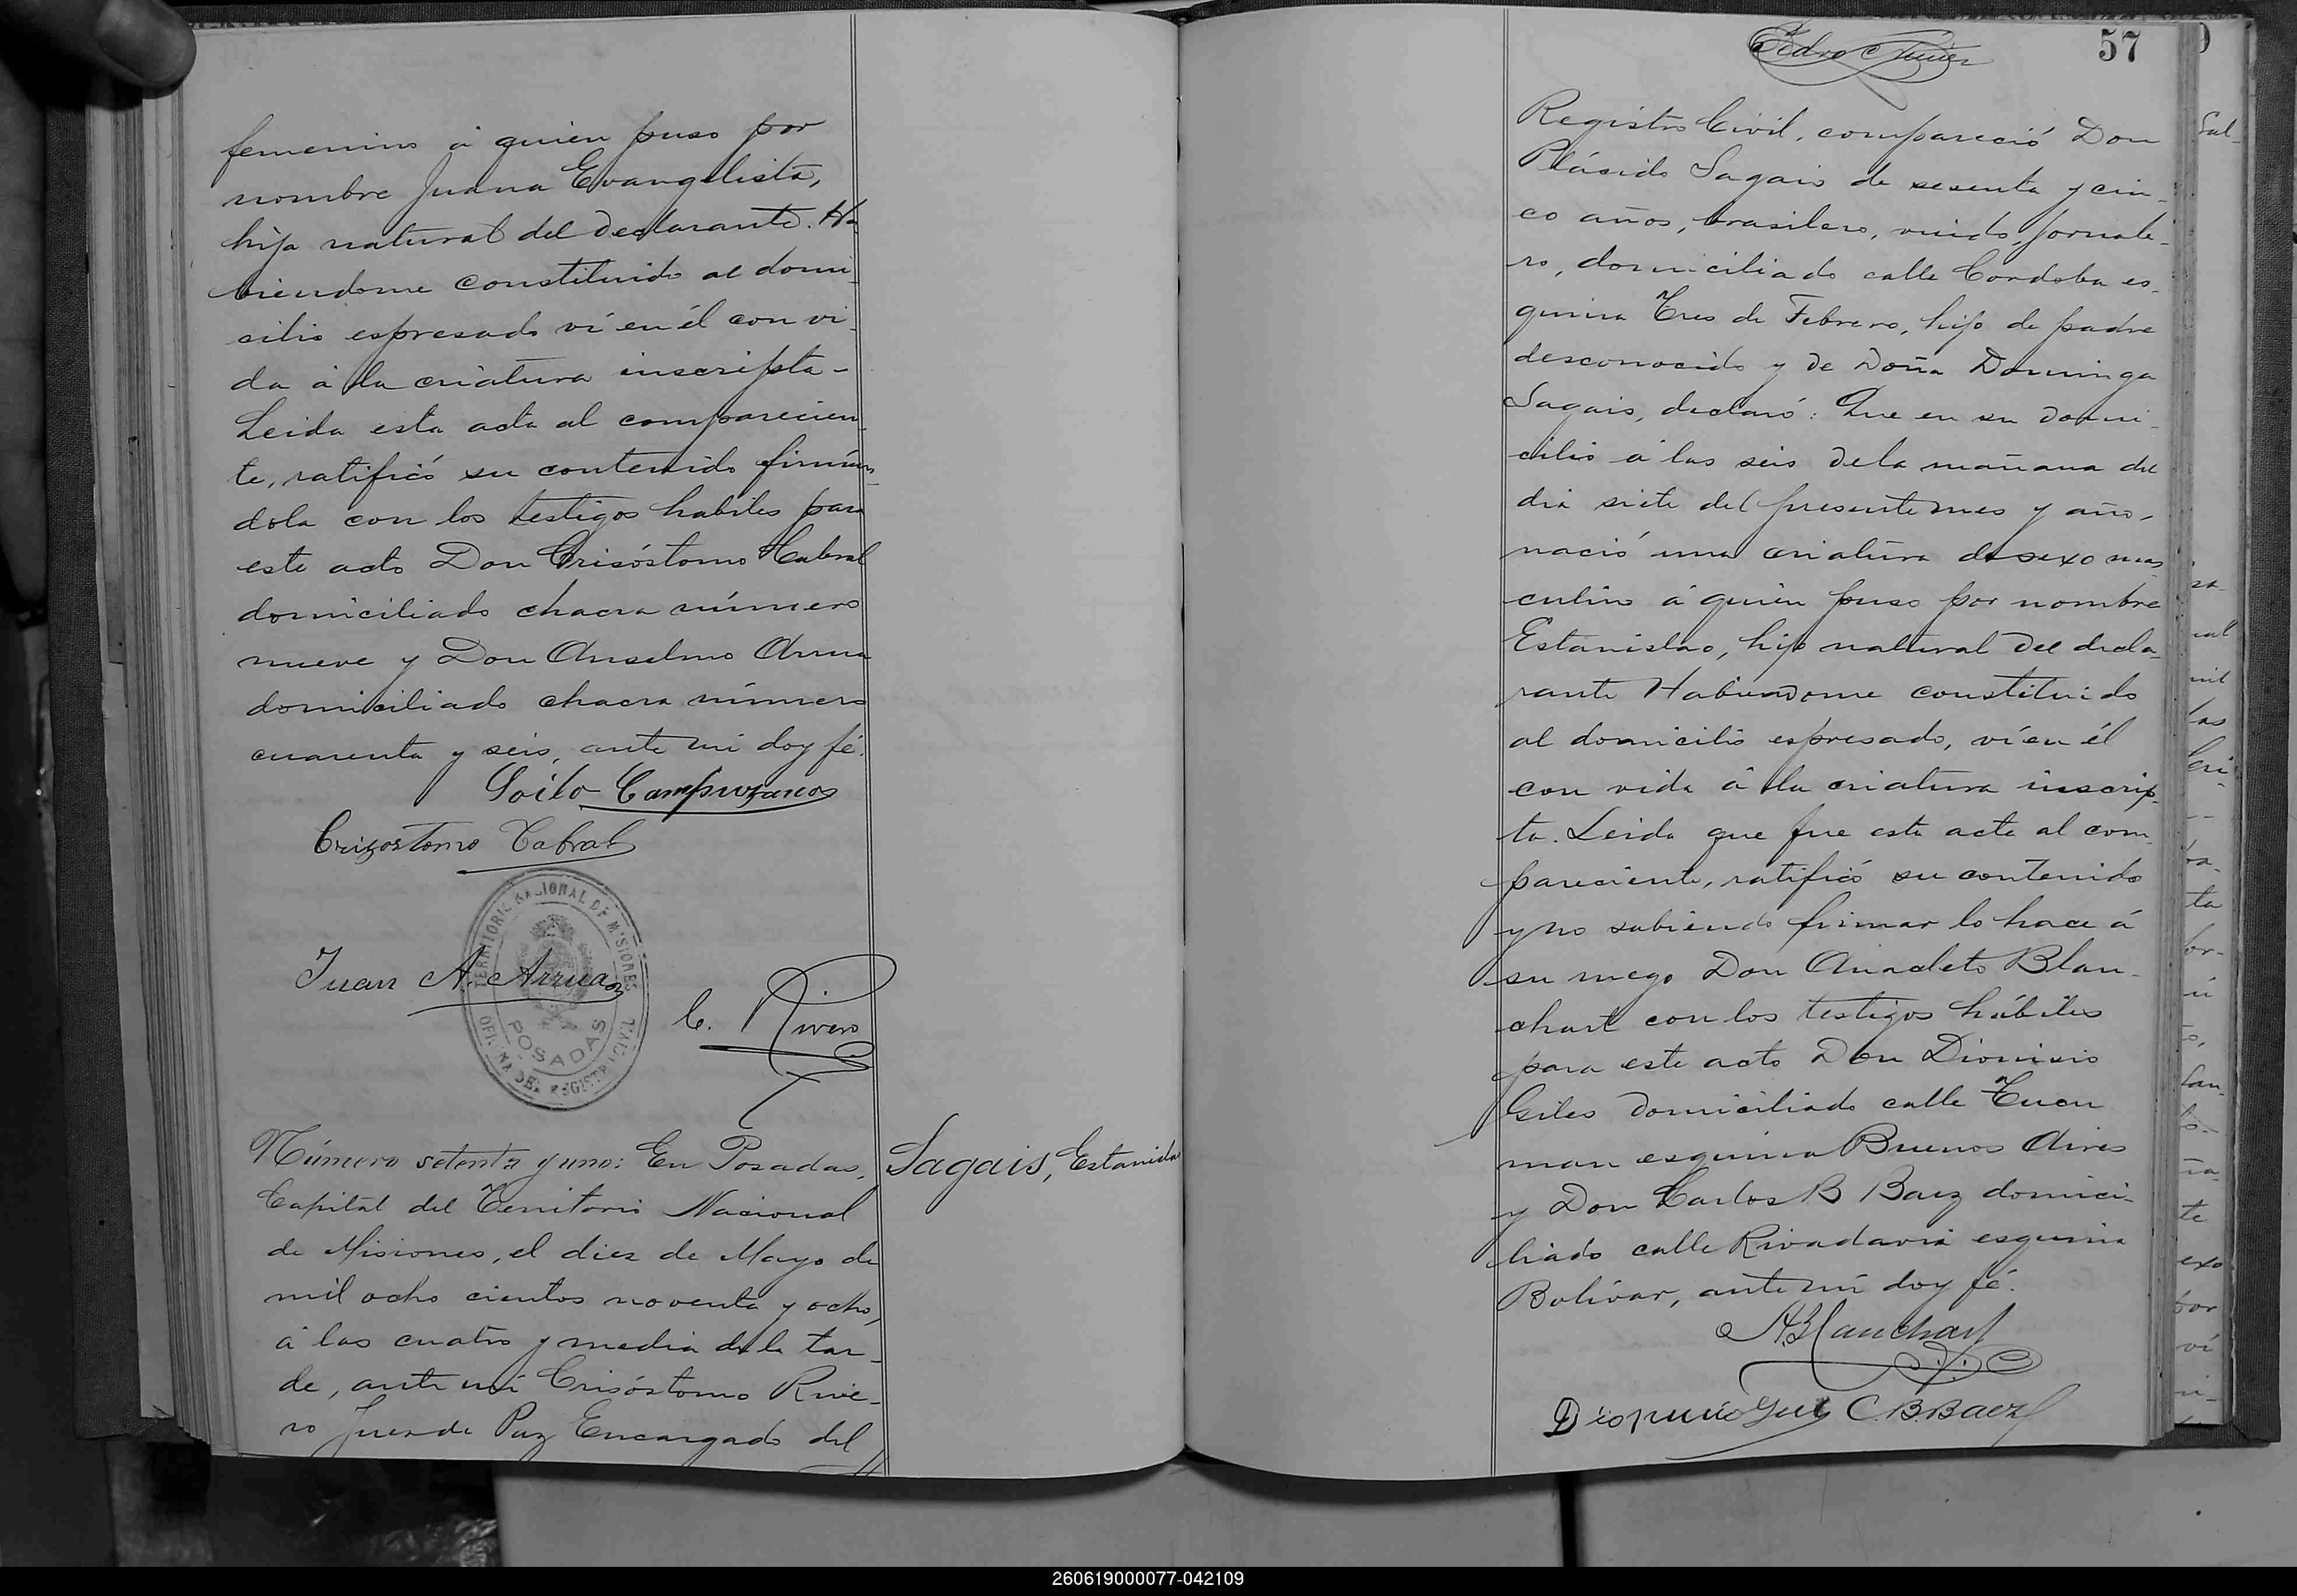 femenino á quien puso por
nombre Juana Evangelista,
hija natural del declarante. Ha
biendome constituido al domi
cilio espresado ví en él con vi
da á la criatura inscripta -
Leida esta acta al comparecien
te, ratificó su contenido firmán
dola con los testigos habiles para
este acto Don Crisóstomo Cabral
domiciliado chacra número
nueve y Don Anselmo Arrua
domiciliado chacra número
cuarenta y seis, ante mi doy fé.
Soilo Campuzano
Crizostomo Cabral
TERRITORIO NACIONAL DE MISIONES
Juan A. Arrua
C. Rivero
POSADAS
OFICINA DEL REGISTRO CIVIL
Número setenta y uno: En Posadas,
Sagais, Estanislao
Capital del Territorio Nacional
de Misiones, el diez de Mayo de
mil ocho cientos noventa y ocho,
á las cuatro y media de la tar-
de, ante mí Crisóstomo Rive-
ro Juez de Paz Encargado del
Pedro
57
Registro Civil, compareció Don
Plácido Sagais de sesenta y cin-
co años, brasilero, viudo, jornale-
ro, domiciliado calle Cordoba es-
quina Tres de Febrero, hijo de padre
desconocido y de Doña Dominga
Sagais, declaró: Que en su domi-
cilio á las seis de la mañana del
dia siete del presente mes y año,
nació una criatura de sexo mas
culino á quien puso por nombre
Estanislao, hijo natural del decla-
rante Habiendome constituido
al domicilio espresado, ví en él
con vida á la criatura inscrip-
ta. Leida que fue esta acta al com-
pareciente, ratificó su contenido
y no sabiendo firmar lo hace á
su ruego Don Anacleto Blan-
chart con los testigos hábiles
para este acto Don Dionisio
Giles domiciliado calle Tucu
man esquina Buenos Aires
y Don Carlos B Baez domici-
liado calle Rivadavia esquina
Bolívar, ante mí doy fé.
A. Blanchart
C. B. Baez
260619000077-042109